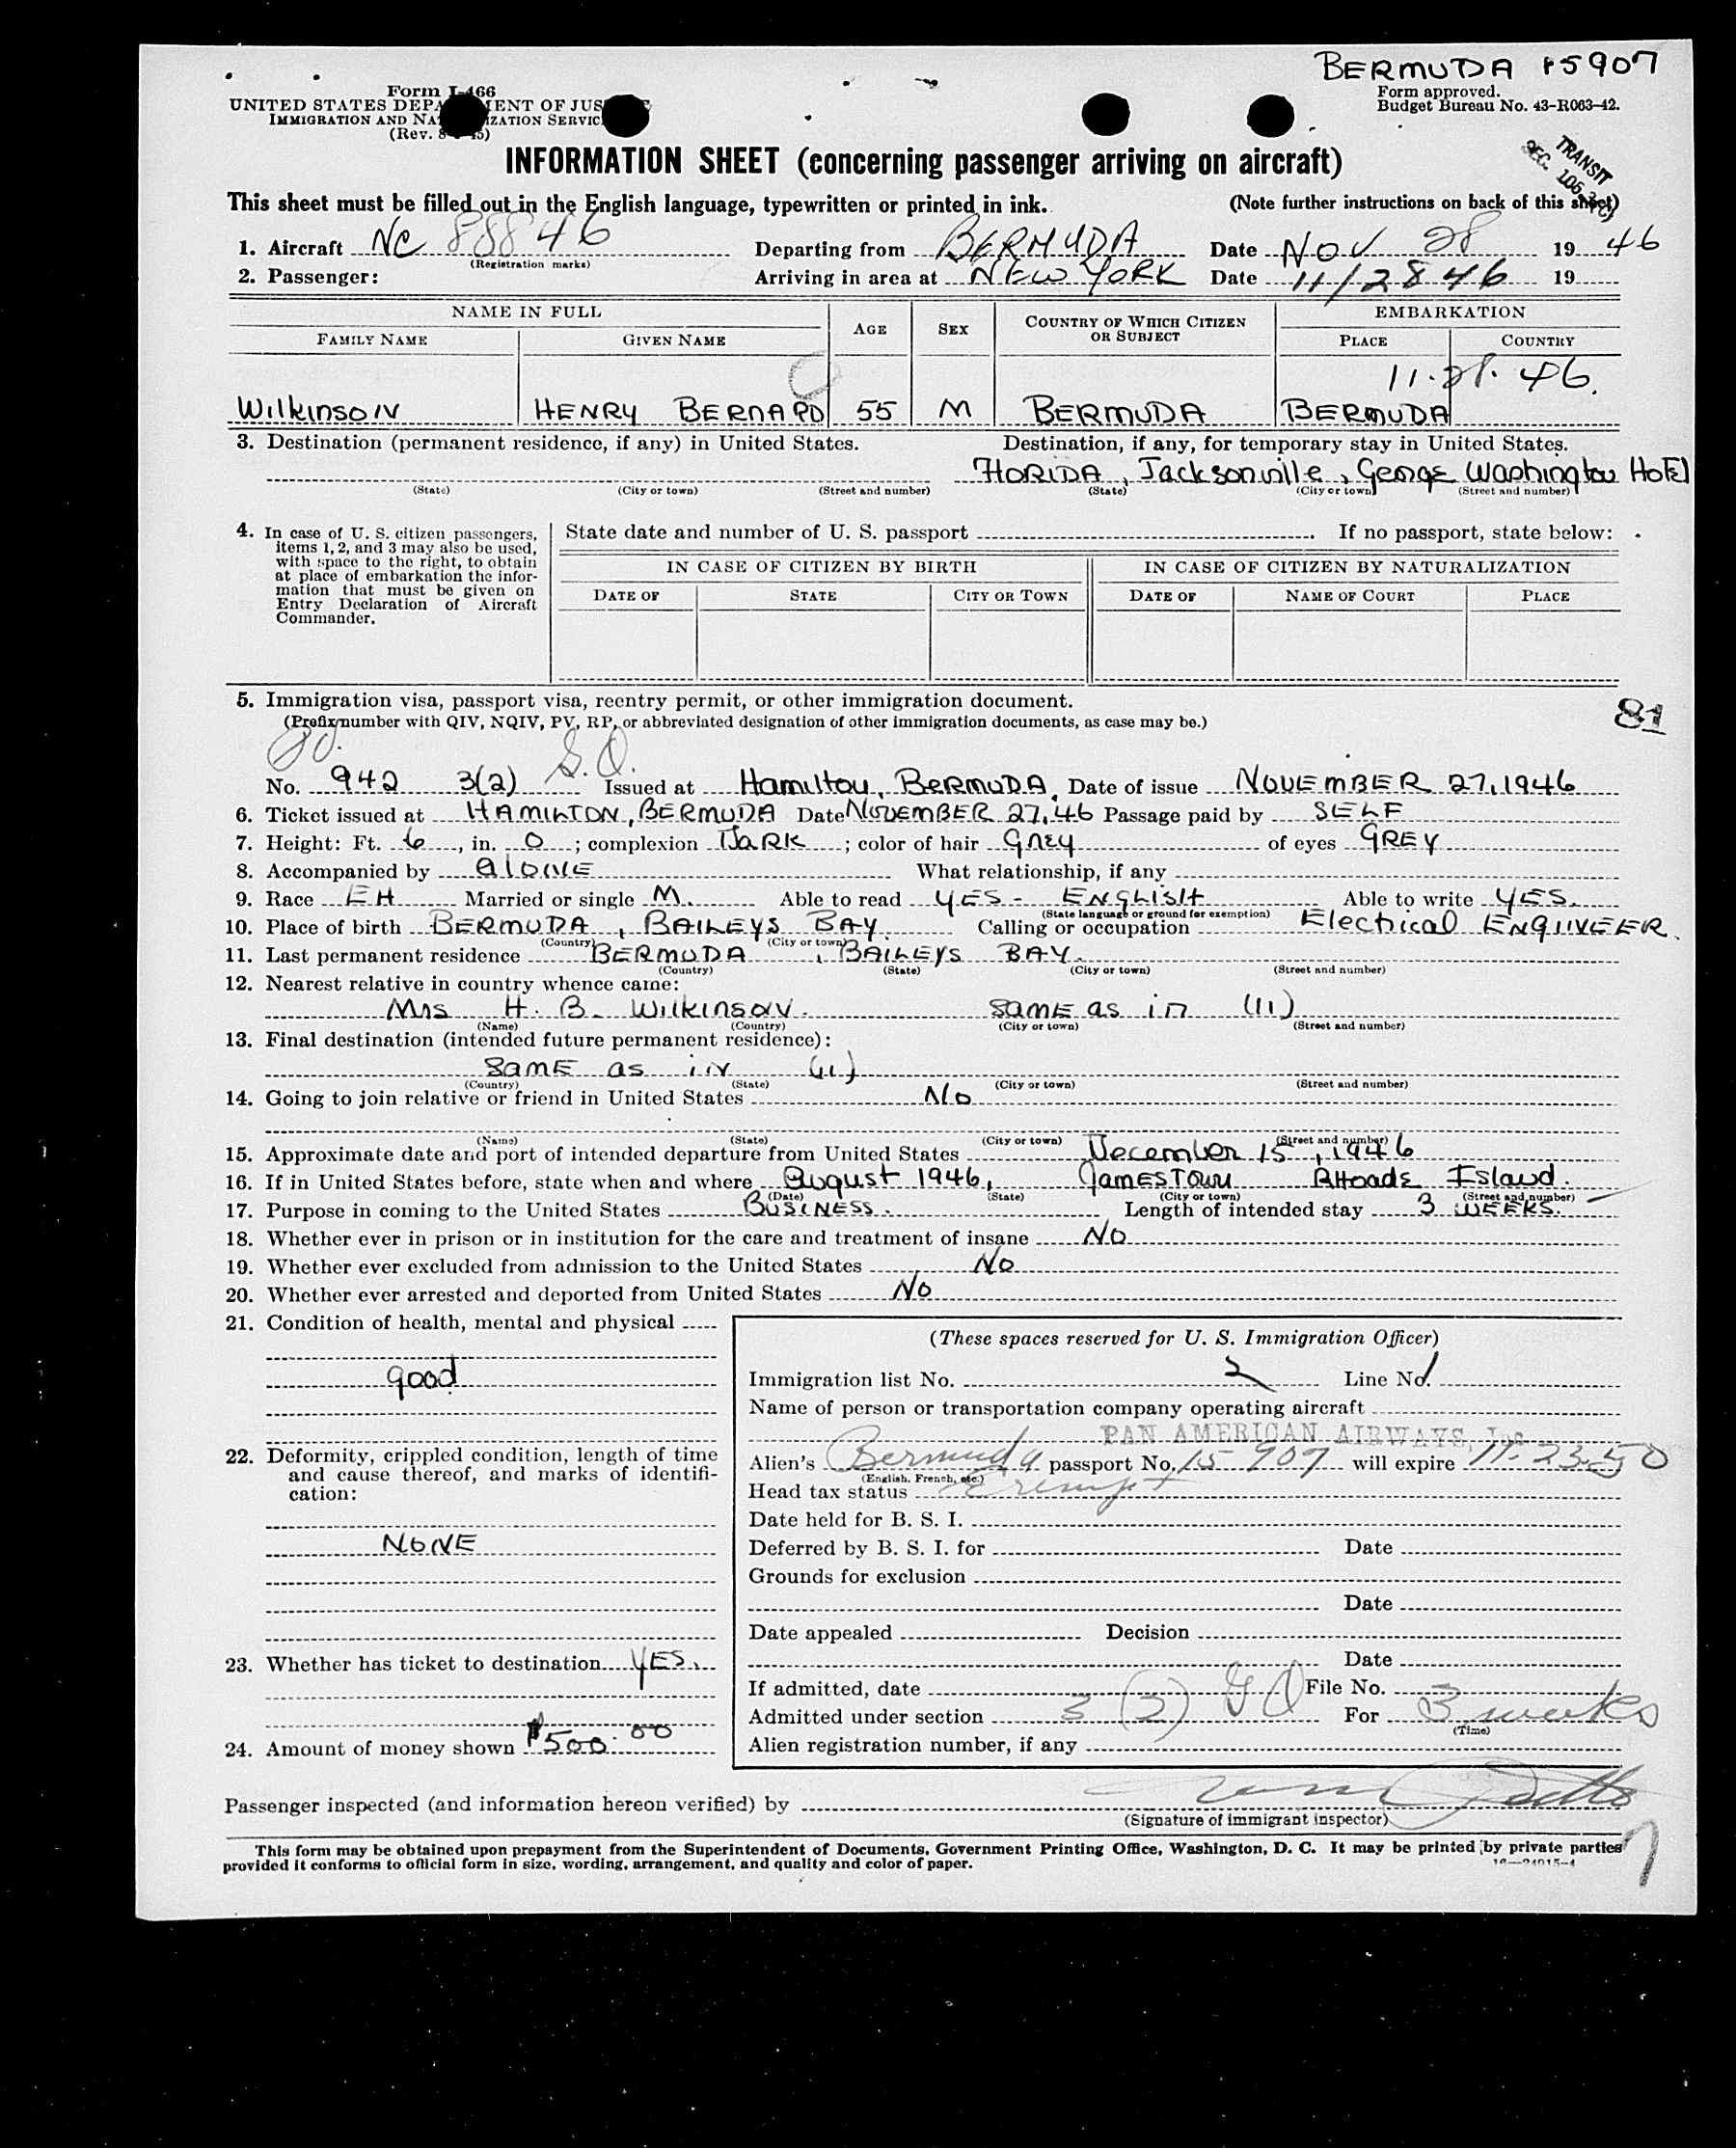 BERMUDA 15907
Form I-466
UNITED STATES DEPA MENT OF JUS
IMMIGRATION AND NA IZATION SERVIC
(Rev. 8 45)
Form approved.
Budget Bureau No. 43-R063-42.
INFORMATION SHEET (concerning passenger arriving on aircraft)
TRANSIT
SEC.
This sheet must be filled out in the English language, typewritten or printed in ink. (Note further instructions on back of this sheet)
1. Aircraft NC 88846 Departing from BERMUDA Date NOV 28 1946
(Registration marks)
2. Passenger: Arriving in area at NEW YORK Date 11/28 46 19
NAME IN FULL AGE SEX COUNTRY OF WHICH CITIZEN OR SUBJECT EMBARKATION
FAMILY NAME GIVEN NAME PLACE COUNTRY
11.28.46.
Wilkinson HENRY BERNARD 55 M BERMUDA BERMUDA
3. Destination (permanent residence, if any) in United States. Destination, if any, for temporary stay in United States.
FLORIDA, Jacksonville, George Washington HOTEl
(State) (City or town) (Street and number) (State) (City or town) (Street and number)
4. In case of U. S. citizen passengers, items 1, 2, and 3 may also be used, with space to the right, to obtain at place of embarkation the information that must be given on Entry Declaration of Aircraft Commander.
State date and number of U. S. passport . If no passport, state below:
IN CASE OF CITIZEN BY BIRTH IN CASE OF CITIZEN BY NATURALIZATION
DATE OF STATE CITY OR TOWN DATE OF NAME OF COURT PLACE
5. Immigration visa, passport visa, reentry permit, or other immigration document.
(Prefix number with QIV, NQIV, PV, RP, or abbreviated designation of other immigration documents, as case may be.)
81
No. 942 3(2) Issued at Hamilton, BERMUDA, Date of issue NOVEMBER 27, 1946
6. Ticket issued at HAMILTON, BERMUDA Date NOVEMBER 27, 46 Passage paid by SELF
7. Height: Ft. 6, in. 0; complexion DARK; color of hair GREY of eyes GREY
8. Accompanied by alONE What relationship, if any
9. Race EH Married or single M. Able to read YES - ENGLISH Able to write YES.
(State language or ground for exemption)
10. Place of birth BERMUDA, BAILEYS BAY. Calling or occupation Electrical ENGINEER.
(Country) (City or town)
11. Last permanent residence BERMUDA, BAILEYS BAY.
(Country) (State) (City or town) (Street and number)
12. Nearest relative in country whence came:
Mrs H. B. Wilkinson. same as in (11)
(Name) (Country) (City or town) (Street and number)
13. Final destination (intended future permanent residence):
same as in (11)
(Country) (State) (City or town) (Street and number)
14. Going to join relative or friend in United States No
(Name) (State) (City or town) (Street and number)
15. Approximate date and port of intended departure from United States December 15, 1946
16. If in United States before, state when and where August 1946, JAMESTOWN RHOADE ISland.
(Date) (State) (City or town) (Street and number)
17. Purpose in coming to the United States BUSINESS. Length of intended stay 3 WEEKS.
18. Whether ever in prison or in institution for the care and treatment of insane No
19. Whether ever excluded from admission to the United States No
20. Whether ever arrested and deported from United States No
21. Condition of health, mental and physical
good
22. Deformity, crippled condition, length of time and cause thereof, and marks of identification:
NONE
23. Whether has ticket to destination YES.
24. Amount of money shown $500.00
(These spaces reserved for U. S. Immigration Officer)
Immigration list No. 2 Line No. 1
Name of person or transportation company operating aircraft
PAN AMERICAN AIRWAYS, Inc
Alien's Bermuda passport No. 15907 will expire 11-23-50
(English, French, etc.)
Head tax status Exempt
Date held for B. S. I.
Deferred by B. S. I. for Date
Grounds for exclusion
Date
Date appealed Decision
Date
If admitted, date File No.
Admitted under section 3 (2) For 3 weeks
(Time)
Alien registration number, if any
Passenger inspected (and information hereon verified) by
(Signature of immigrant inspector)
This form may be obtained upon prepayment from the Superintendent of Documents, Government Printing Office, Washington, D. C. It may be printed by private parties
provided it conforms to official form in size, wording, arrangement, and quality and color of paper.